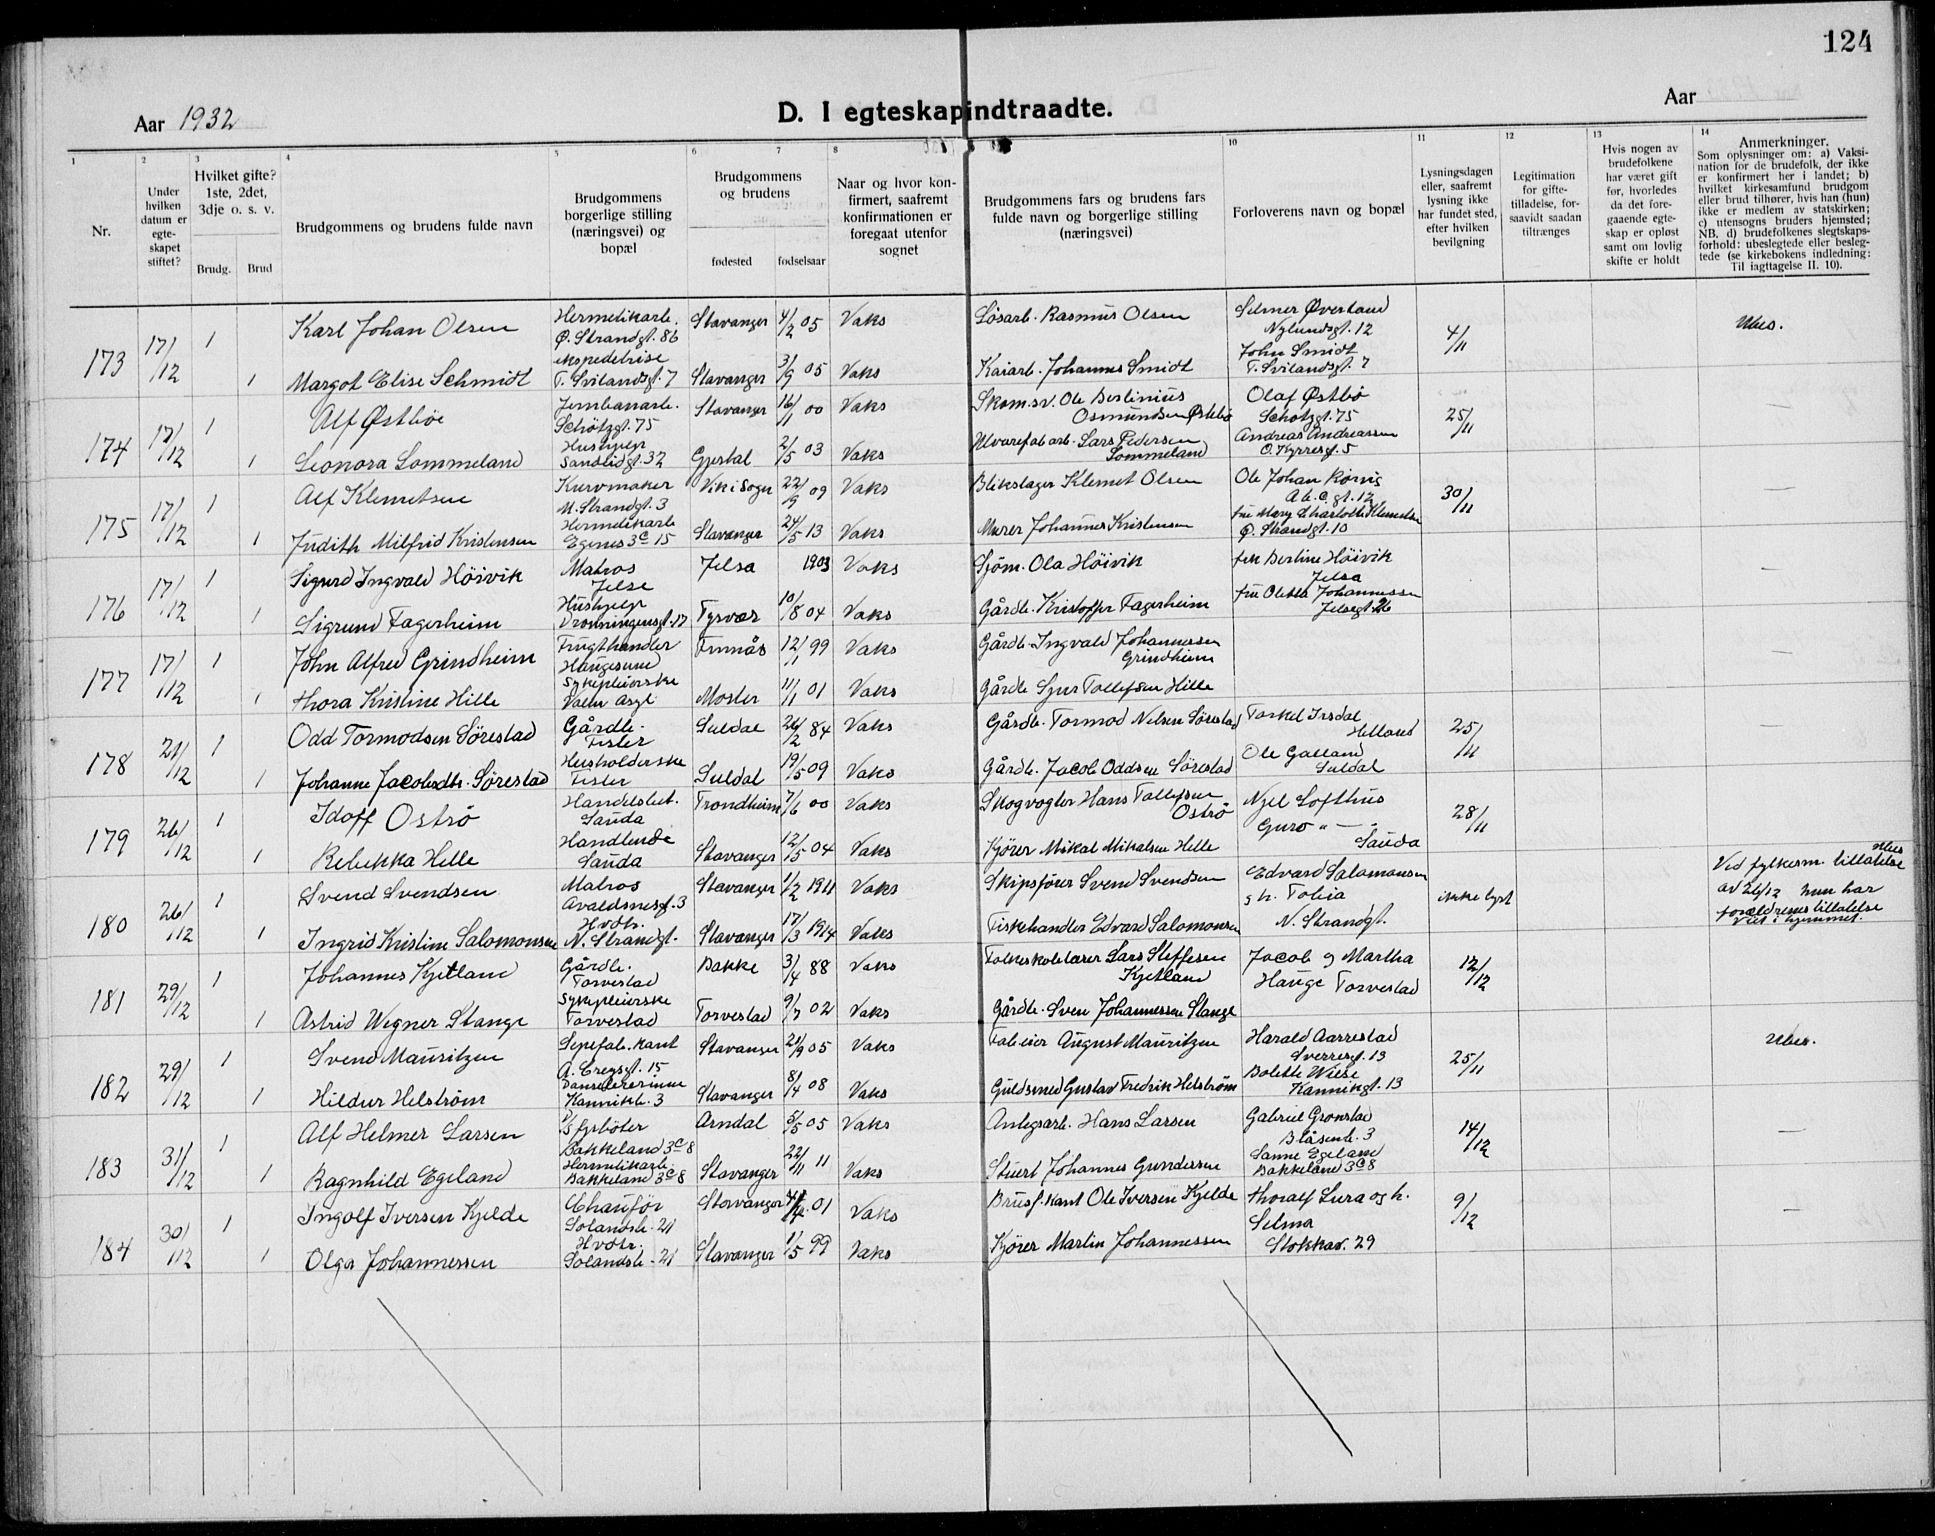 124
Aar 1932
D. I egteskap indtraadte.
Aar
1 2 3 4 5 6 7 8 10 11 12 13 14
Nr.
Under hvilken datum er egte-skapet stiftet?
Hvilket gifte? 1ste, 2det, 3dje o. s. v.
Brudg. Brud
Brudgommens og brudens fulde navn
Brudgommens borgerlige stilling (næringsvei) og bopæl
Brudgommens og brudens
fødested fødselsaar
Naar og hvor kon-firmert, saafremt konfirmationen er foregaat utenfor sognet
Brudgommens fars og brudens fars fulde navn og borgerlige stilling (næringsvei)
Forloverens navn og bopæl
Lysningsdagen eller, saafremt lysning ikke har fundet sted, efter hvilken bevilgning
Legitimation for gifte-tilladelse, for-saavidt saadan tiltrænges
Hvis nogen av brudefolkene har været gift før, hvorledes da det fore-gaaende egte-skap er opløst samt om lovlig skifte er holdt
Anmerkninger.
Som oplysninger om: a) Vaksi-nation for de brudefolk, der ikke er konfirmert her i landet; b) hvilket kirkesamfund brudgom eller brud tilhører, hvis han (hun) ikke er medlem av statskirken; c) utensogns bruders hjemsted; NB. d) brudefolkenes slegtskaps-forhold: ubeslegtede eller besleg-tede (se kirkebokens indledning: Til iagttagelse II. 10).
173 17/12 1 Karl Johan Olsen Hermetikarb. Ø. Strandgt. 86 Stavanger 4/2 05 Vaks Løsarb. Rasmus Olsen Selmer Øverland Nylundsgt. 12 4/11 Ubes.
1 Margot Elise Schmidt ekspeditrise T. Svilandsgt. 7 Stavanger 3/9 05 Vaks Kaiarb. Johannes Smidt John Smidt T. Svilandsgt. 7
174 17/12 1 Alf Østbøe Jernbanarb. Schøtzgt. 75 Stavanger 16/1 00 Vaks Skom.sv. Ole Berlinius Osmundsen Østebø Olaf Østbö Schøtzgt. 75 25/11 —
1 Leonora Lommeland Hushjelp Sandeidgt. 32 Gjestal 2/5 03 Vaks Ulvarefabarb. Lars Pedersen Lommeland Andreas Andreassen O. Kyrresgt. 5
175 17/12 1 Alf Klemetsen Kurvmaker N. Strandgt. 3 Vik i Sogn 22/9 09 Vaks Blikslager Klemet Olsen Ole Johan Rörvig A.b.c. gt. 12 30/11 —
1 Judith Milfrid Kristensen Hermetikarb Egenes 3c 15 Stavanger 24/5 13 Vaks Murer Johannes Kristensen fru Mary Charlotte Klemetsen Ø. Strandgt. 10
176 17/12 1 Sigurd Ingvald Höivik Matros Jelse Jelsa 1903 Vaks Sjöm. Ola Höivik frk Berline Höivik Jelsa —
1 Sigrund Fagerheim Hushjelp Dronningensgt. 17 Tysvær 10/8 04 Vaks Gårdb. Kristoffer Fagerheim fru Oletta Johannessen Jelsegt. 26
177 17/12 1 John Alfred Grindheim Frugthandler Haugesund Finnås 12/11 99 Vaks Gårdb. Ingvald Johannessen Grindheim —
1 Thora Kristine Hille Sykepleierske Valen Asyl Moster 11/1 01 Vaks Gårdb Sjur Tollefsen Hille
178 21/12 1 Odd Tormodsen Sörestad Gårdb. Fister Suldal 26/2 84 Vaks Gårdb. Tormod Nelsen Sörestad Torkel Irsdal Helland 25/11 —
1 Johanne Jacobsdtr. Sörestad Husholderske Fister Suldal 19/5 09 Vaks Gårdb. Jacob Oddsen Sörestad Ole Galland Suldal
179 26/12 1 Idoff Oströ Handelsbet. Sauda Trondheim 7/6 00 Vaks Skogvogter Hans Tollefsen Oströ Njel Lofthus 28/11
1 Rebekka Helle Handlende Sauda Stavanger 12/5 04 Vaks Kjörer Mikal Mikalsen Helle Guro " — " Sauda
180 26/12 1 Svend Svendsen Matros Avaldsnesgt. 3 Stavanger 1/2 1911 Vaks Skipsfører Svend Svendsen Edvard Salomonsen g h. Tobia ikke lyst Ubes Ved fylkesm. tillatelse av 24/12 hun har forældrenes tillatelse Viet i hjemmet.
1 Ingrid Kristine Salomonsen Hvdtr. N. Strandgt. Stavanger 17/3 1914 Vaks Fiskehandler Edvard Salomonsen N. Strandgt.
181 29/12 1 Johannes Kjetland Gårdb. Torvestad Bakke 3/4 88 Vaks Folkeskolelærer Lars Steffesen Kjetland Jacob og Martha Hauge Torvestad 12/12
1 Astrid Wegner Stange Sykepleierske Torvestad Torvestad 9/7 02 Vaks Gårdb. Sven Johannessen Stange
182 29/12 1 Svend Mauritzen Sepefab.kant A. Cregsgt. 15 Stavanger 21/9 05 Vaks Fab eier August Mauritzen Harald Aarrestad Sverresgt. 13 25/11 Ubes.
1 Hildur Helström Danselererinne Kannikb. 3 Stavanger 8/4 08 Vaks Guldsmed Gustav Fredrik Helström Bolette Wiese Kannikgt. 13
183 31/12 1 Alf Helmer Larsen D/S fyrböter Bakkeland 3c 8 Arndal 5/5 05 Vaks Anlegsarb. Hans Larsen Gabriel Gronstad Blåsenb. 3 14/12 —
1 Ragnhild Egeland Hermetikarb. Bakkeland 3c 8 Stavanger 22/11 11 Vaks Stuert Johannes Gundersen Sanne Egeland Bakkeland 3c 8
184 30/12 1 Ingolf Iversen Kjelde Chauför Solandsb. 21 Stavanger 4/4 01 Vaks Brusf.kant Ole Iversen Kjelde Thoralf Lura og h. Selma 9/12 —
1 Olga Johannessen Hvdtr. Solandsb. 21 Stavanger 1/5 99 Vaks Kjörer Martin Johannessen Stokkav. 29